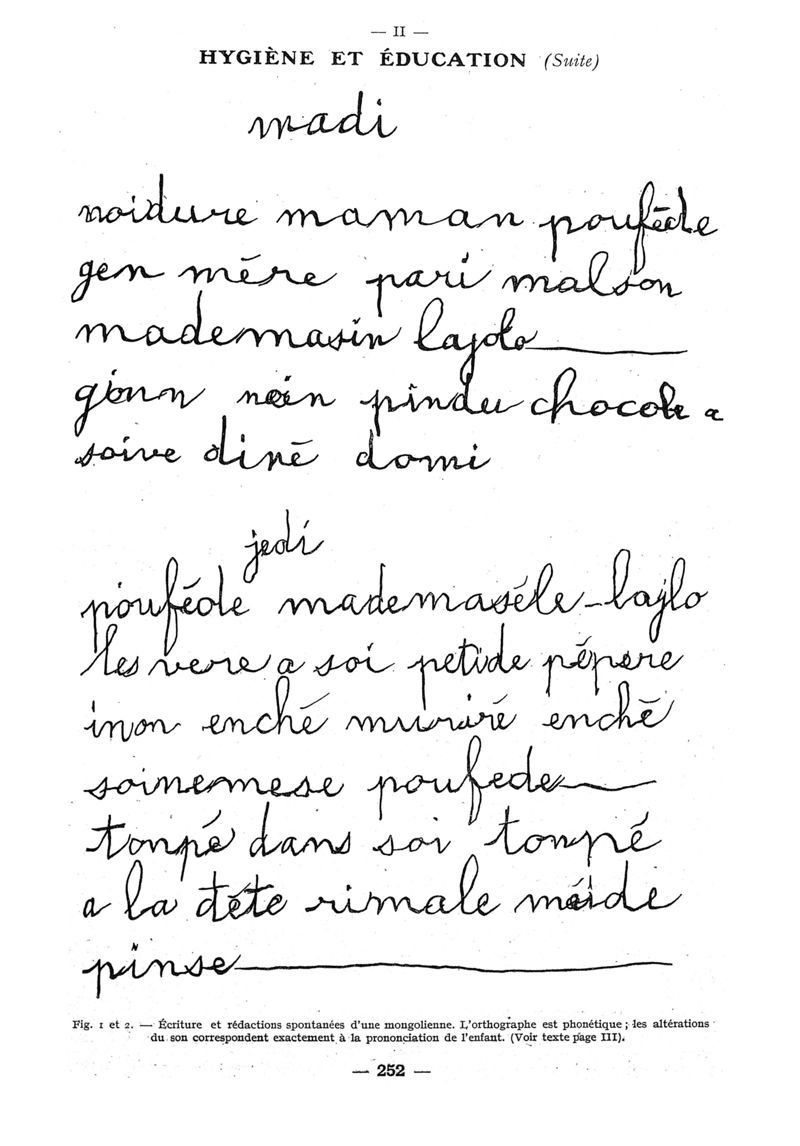 — II —
HYGIÈNE ET ÉDUCATION (Suite)
madi
noidure maman poufēde
gen mēre pari malson
mademasin lajolo
ginn noin pindu chocole a
soive dinē domi
jedi
pouféde mademaséle lajlo
les vere a soi petide pépere
inon enché muriré enchē
soinemese poufede
tonpé dans soi tonpé
a la déte rimale méide
pinse
Fig. 1 et 2. — Écriture et rédactions spontanées d'une mongolienne. L'orthographe est phonétique ; les altérations
du son correspondent exactement à la prononciation de l'enfant. (Voir texte page III).
— 252 —